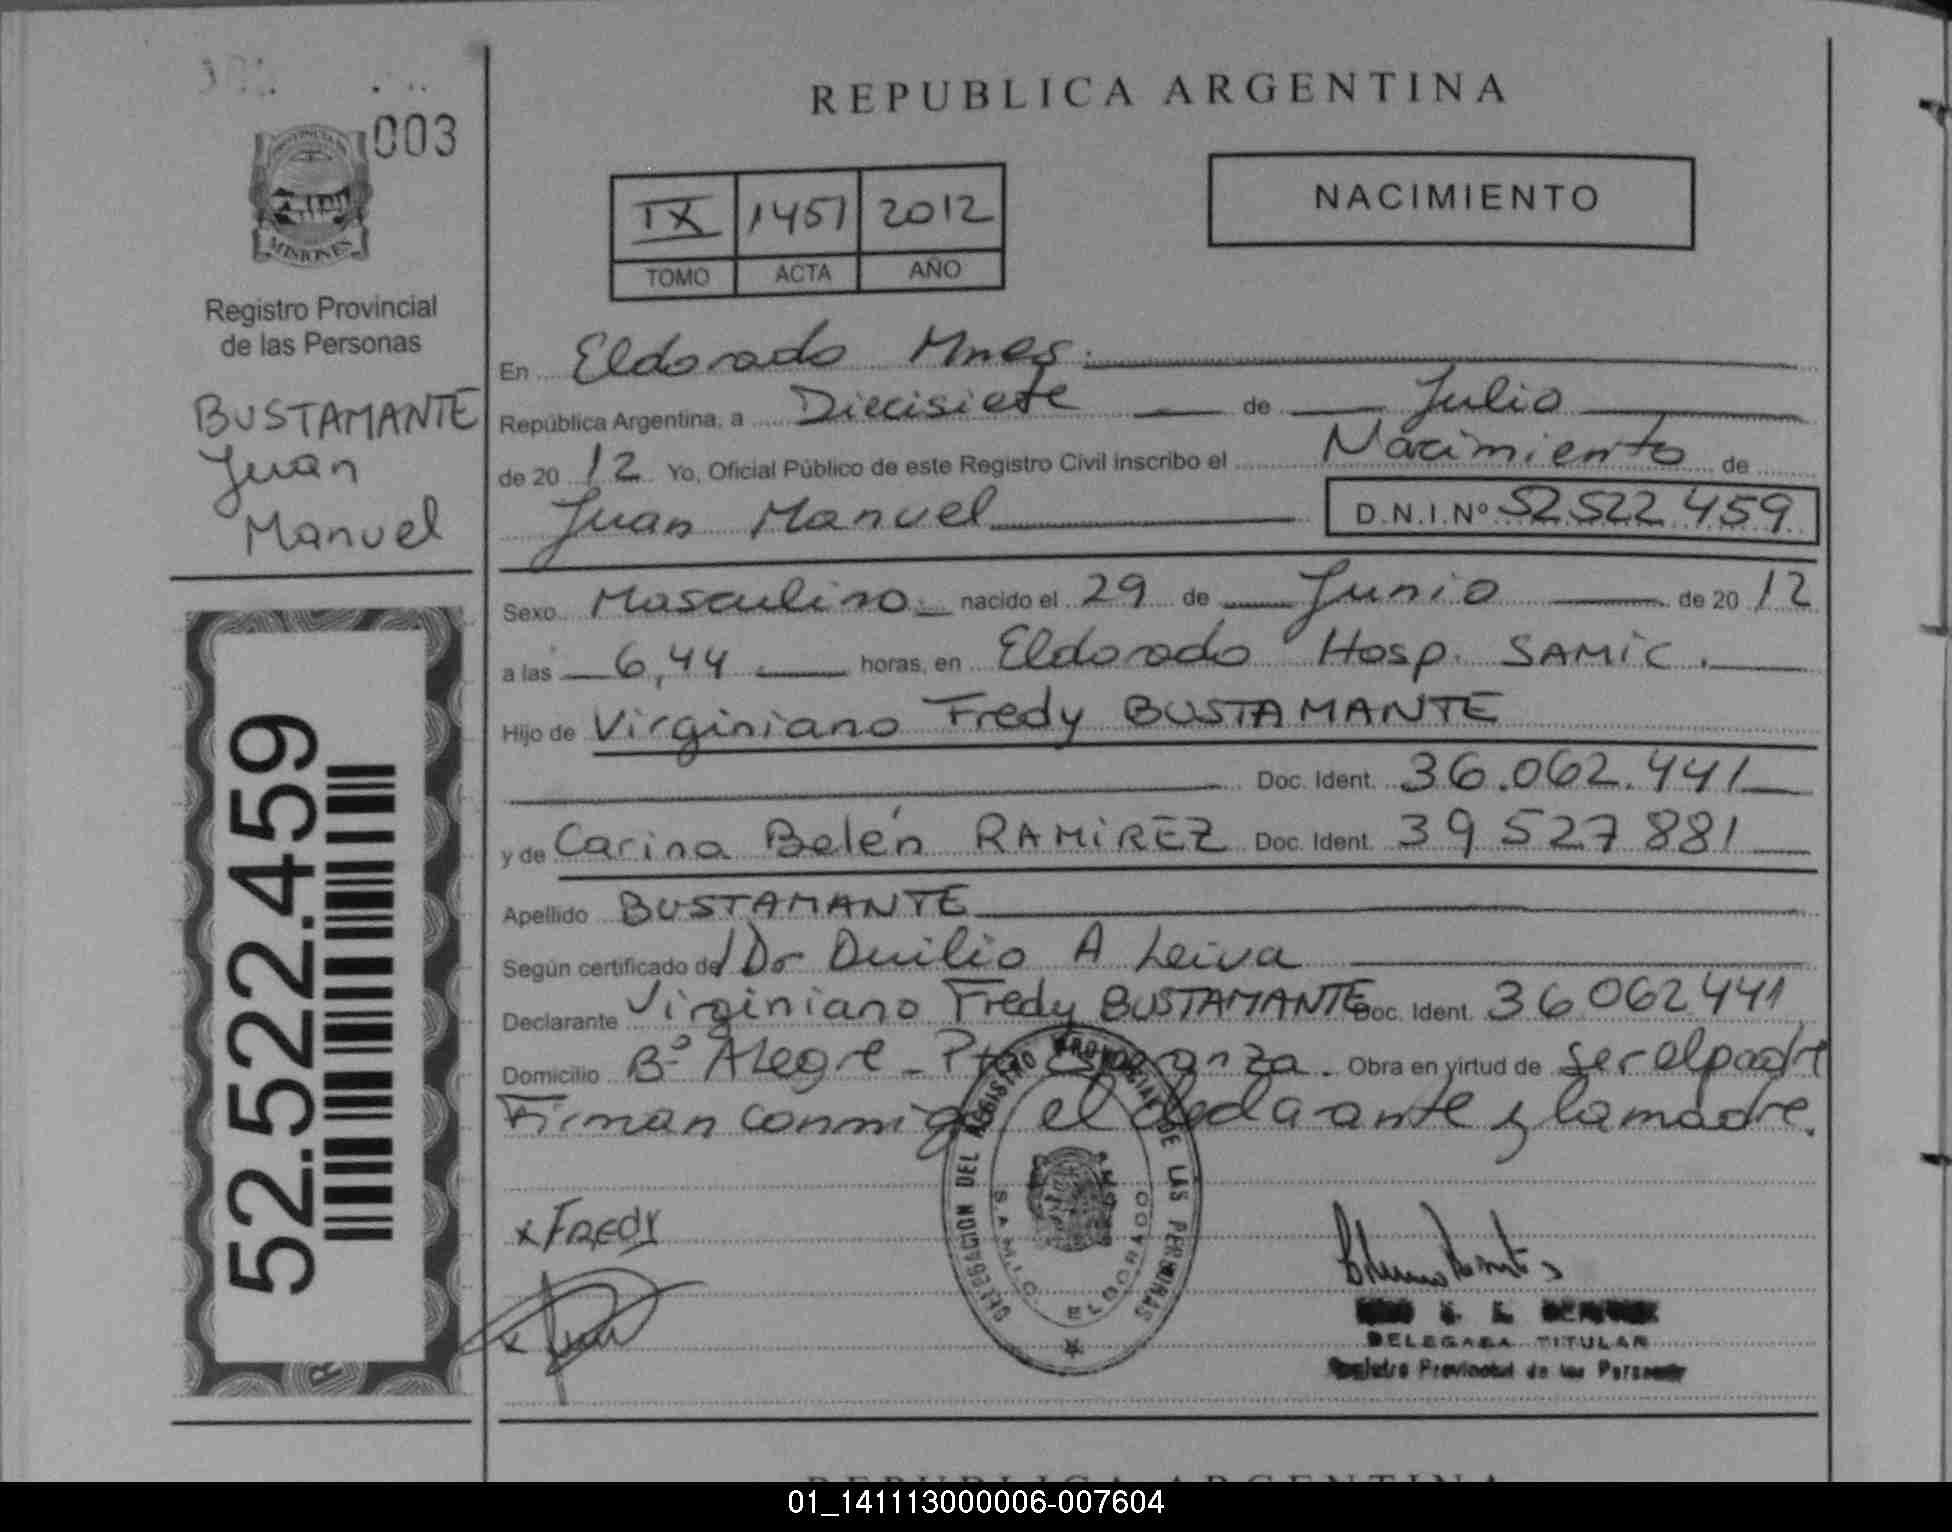 003
PROVINCIA DE
MISIONES
Registro Provincial
de las Personas
BUSTAMANTE
Juan
Manuel
52.522.459
REPUBLICA ARGENTINA
NACIMIENTO
IX 1451 2012
TOMO ACTA AÑO
En Eldorado Mnes.
República Argentina, a Diecisiete de Julio
de 20 12 Yo, Oficial Público de este Registro Civil inscribo el Nacimiento de
Juan Manuel D.N.I.Nº 52 522 459
Sexo Masculino nacido el 29 de Junio de 20 12
a las 6,44 horas, en Eldorado Hosp. SAMIC.
Hijo de Virginiano Fredy BUSTAMANTE
Doc. Ident. 36.062.441
y de Carina Belén RAMIREZ Doc. Ident. 39 527 881
Apellido BUSTAMANTE
Según certificado de Dr Duilio A Leiva
Declarante Virginiano Fredy BUSTAMANTE Doc. Ident. 36 062 441
Domicilio Bº Alegre - Pto Esperanza. Obra en virtud de ser el padre
Firman conmigo el declarante y la madre.
DELEGACION DEL REGISTRO PROVINCIAL DE LAS PERSONAS
S.A.M.I.C. ELDORADO
x Fredy
x
DELEGADA TITULAR
Registro Provincial de las Personas
REPUBLICA ARGENTINA
01_141113000006-007604